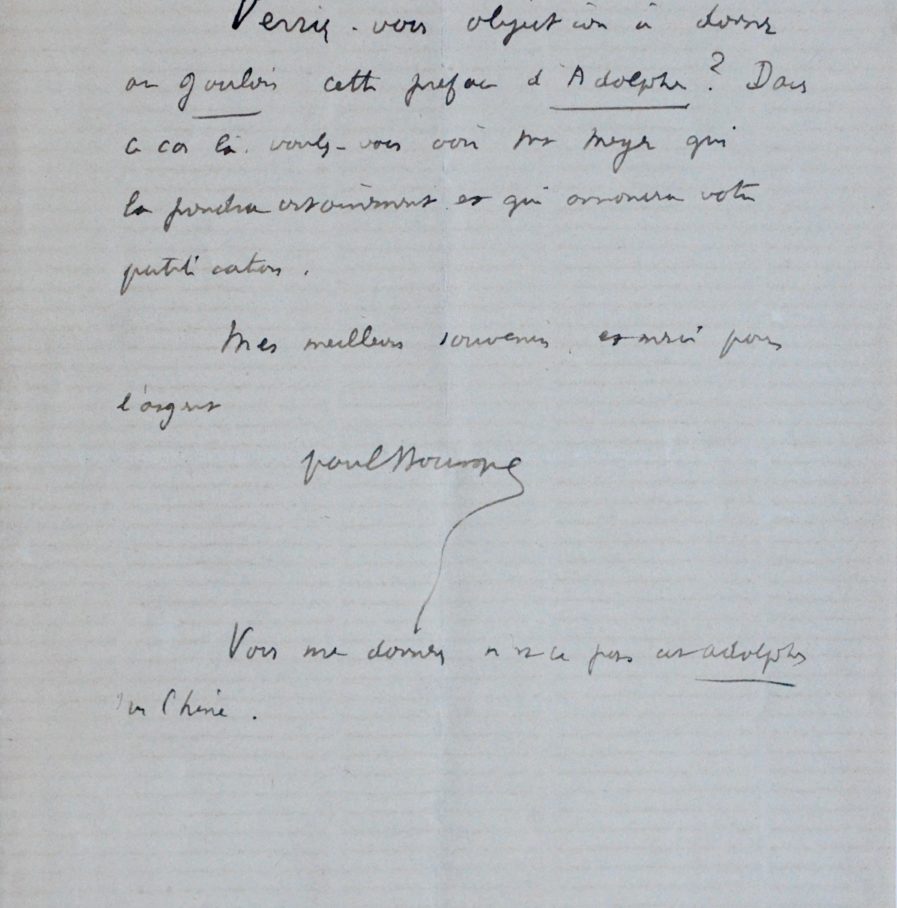 Verriez-vous objection à donner
au Gaulois cette préface d'Adolphe ? Dans
ce cas là. voulez-vous voir Mr Meyer qui
la prendra certainement et qui annoncera votre
publication.
Mes meilleurs souvenirs et merci pour
l'argent
Paul Bourget
Vous me donnerez n'est ce pas cet Adolphe
sur Chine.